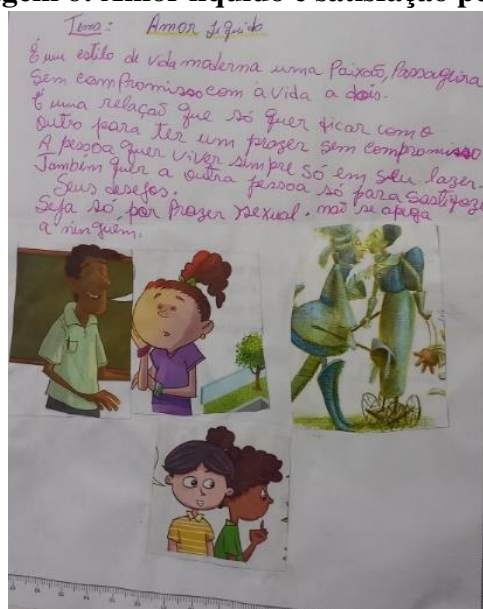 Tema: Amor Líquido
É um estilo de vida moderna uma Paixão, Passageira
Sem compromisso com a vida a dois.
É uma relação que só quer ficar com o
outro para ter um prazer sem compromisso
A pessoa quer viver sempre só em seu lazer.
Também quer a outra pessoa só para
Seus desejos.
Seja só, por Prazer sexual. não se apega
a ninguém.